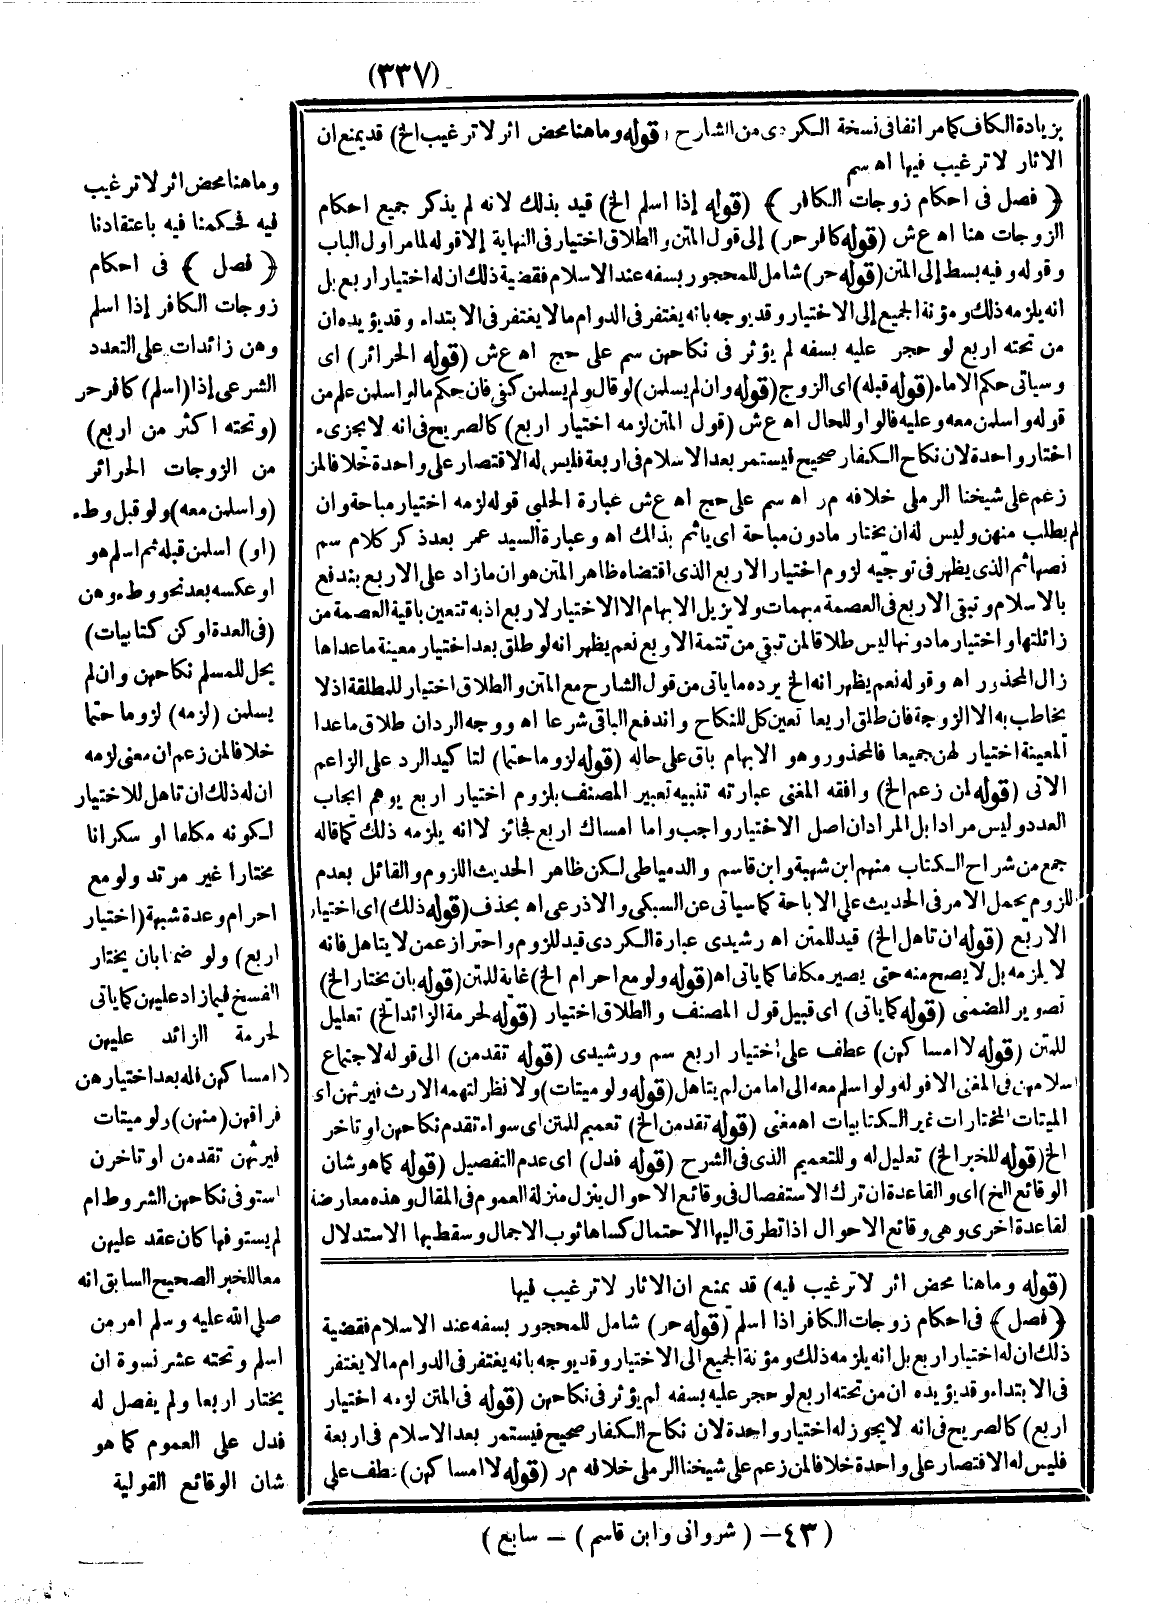 (٣٣٧)
بزيادة الكاف كما مر انفا فى نسخة الكردى من الشارح (قوله وما هنا محض اثر لا ترغيب الخ) قد يمنع ان
الاثار لا ترغيب فيها اه سم
﴿ فصل فى احكام زوجات الكافر ﴾ (قوله إذا اسلم الخ) قيد بذلك لانه لم يذكر جميع احكام
الزوجات هنا اه ع ش (قوله كافر حر) إلى قول المتن والطلاق اختيار فى النهاية إلا قوله لما مر اول الباب
وقوله وفيه بسط إلى المتن (قوله حر) شامل للمحجور بسفه عند الاسلام فقضية ذلك ان له اختيار اربع بل
انه يلزمه ذلك ومؤنة الجميع إلى الاختيار وقد يوجه بانه يغتفر فى الدوام ما لا يغتفر فى الابتداء وقد يؤيده ان
من تحته اربع لو حجر عليه بسفه لم يؤثر فى نكاحهن سم على حج اه ع ش (قوله الحرائر) اى
وسياتى حكم الاماء (قوله قبله) اى الزوج (قوله وان لم يسلمن) لو قال ولم يسلمن كفى فان حكم ما لو اسلمن علم من
قوله واسلمن معه وعليه فالواو للحال اه ع ش (قول المتن لزمه اختيار اربع) كالصريح فى انه لا يجزىء
اختار واحدة لان نكاح الكفار صحيح فيستمر بعد الاسلام فى اربعة فليس له الاقتصار على واحدة خلافا لمن
زعم على شيخنا الرملى خلافه م ر اه سم على حج اه ع ش عبارة الحلبى قوله لزمه اختيار مباحة وان
لم يطلب منهن وليس له ان يختار مادون مباحة اى ياثم بذلك اه وعبارة السيد عمر بعد ذكر كلام سم
نصها ثم الذى يظهر فى توجيه لزوم اختيار الاربع الذى اقتضاه ظاهر المتن هو ان ما زاد على الاربع يندفع
بالاسلام وتبقى الاربع فى العصمة مبهمات ولا يزيل الابهام الا الاختيار لاربع اذ به تتعين باقية العصمة من
زائلتها واختيار مادونها ليس طلاقا لمن تبقى من تتمة الاربع نعم يظهر انه لو طلق بعد اختيار معينة ما عداها
زال المحذور اه وقوله نعم يظهر انه الخ يرده ما ياتى من قول الشارح مع المتن والطلاق اختيار للمطلقة اذ لا
يخاطب به الا الزوجة فان طلق اربعا تعين كل للنكاح واندفع الباقى شرعا اه ووجه الرد ان طلاق ما عدا
المعينة اختيار لهن جميعا فالمحذور وهو الابهام باق على حاله (قوله لزوما حتما) لتاكيد الرد على الزاعم
الاتى (قوله لمن زعم الخ) وافقه المغنى عبارته تنبيه تعبير المصنف بلزوم اختيار اربع يوهم ايجاب
العدد وليس مرادا بل المراد ان اصل الاختيار واجب واما امساك اربع فجائز لا انه يلزمه ذلك كما قاله
جمع من شراح الكتاب منهم ابن شهبة وابن قاسم والدمياطى لكن ظاهر الحديث اللزوم والقائل بعدم
للزوم يحمل الامر فى الحديث على الاباحة كما سياتى عن السبكى والاذرعى اه بحذف (قوله ذلك) اى اختيار
الاربع (قوله ان تاهل الخ) قيد للمتن اه رشيدى عبارة الكردى قيد للزوم واحتراز عمن لا يتاهل فانه
لا يلزمه بل لا يصح منه حتى يصير مكلفا كما ياتى اه (قوله ولو مع احرام الخ) غاية للمتن (قوله بان يختار الخ)
تصوير للضمنى (قوله كما ياتى) اى قبيل قول المصنف والطلاق اختيار (قوله لحرمة الزائد الخ) تعليل
للمتن (قوله لا امساكهن) عطف على اختيار اربع سم ورشيدى (قوله تقدمن) الى قوله لاجتماع
اسلامهن فى المغنى الا قوله ولو اسلم معه الى اما من لم يتاهل (قوله ولو ميتات) ولا نظر لتهمه الارث فيرثهن اى
الميتات المختارات غير الكتابيات اه مغنى (قوله تقدمن الخ) تعميم للمتن اى سواء تقدم نكاحهن او تاخر
الخ (قوله للخبر الخ) تعليل له وللتعميم الذى فى الشرح (قوله فدل) اى عدم التفصيل (قوله كما هو شان
الوقائع الخ) اى والقاعدة ان ترك الاستفصال فى وقائع الاحوال ينزل منزلة العموم فى المقال وهذه معارضة
لقاعدة اخرى وهى وقائع الاحوال اذا تطرق اليها الاحتمال كساها ثوب الاجمال وسقط بها الاستدلال
(قوله وما هنا محض اثر لا ترغيب فيه) قد يمنع ان الاثار لا ترغيب فيها
﴿ فصل ﴾ فى احكام زوجات الكافر اذا اسلم (قوله حر) شامل للمحجور بسفه عند الاسلام فقضية
ذلك ان له اختيار اربع بل انه يلزمه ذلك ومؤنة الجميع الى الاختيار وقد يوجه بانه يغتفر فى الدوام ما لا يغتفر
فى الابتداء وقد يؤيده ان من تحته اربع لو حجر عليه بسفه لم يؤثر فى نكاحهن (قوله فى المتن لزمه اختيار
اربع) كالصريح فى انه لا يجوز له اختيار واحدة لان نكاح الكفار صحيح فيستمر بعد الاسلام فى اربعة
فليس له الاقتصار على واحدة خلافا لمن زعم على شيخنا الرملى خلافه م ر (قوله لا امساكهن) عطف على
وما هنا محض اثر لا ترغيب
فيه فحكمنا فيه باعتقادنا
﴿ فصل ﴾ فى احكام
زوجات الكافر إذا اسلم
وهن زائدات على التعدد
الشرعى إذا (اسلم) كافر حر
(وتحته اكثر من اربع)
من الزوجات الحرائر
(واسلمن معه) ولو قبل وطء
(او) اسلمن قبله ثم اسلم هو
او عكسه بعد نحو وطء وهن
(فى العدة او كن كتابيات)
يحل للمسلم نكاحهن وان لم
يسلمن (لزمه) لزوما حتما
خلافا لمن زعم ان معنى لزمه
ان له ذلك ان تاهل للاختيار
لكونه مكلفا او سكرانا
مختارا غير مرتد ولو مع
احرام وعدة شبهة (اختيار
اربع) ولو ضمنا بان يختار
الفسخ فيما زاد عليهن كما ياتى
لحرمة الزائد عليهن
لا امساكهن فله بعد اختيارهن
فراقهن (منهن) ولو ميتات
فيرثهن تقدمن او تاخرن
استوفى نكاحهن الشروط ام
لم يستوفها كان عقد عليهن
معا للخبر الصحيح السابق انه
صلى الله عليه وسلم امر من
اسلم وتحته عشر نسوة ان
يختار اربعا ولم يفصل له
فدل على العموم كما هو
شان الوقائع القولية
(٤٣ – (شروانى وابن قاسم) – سابع)